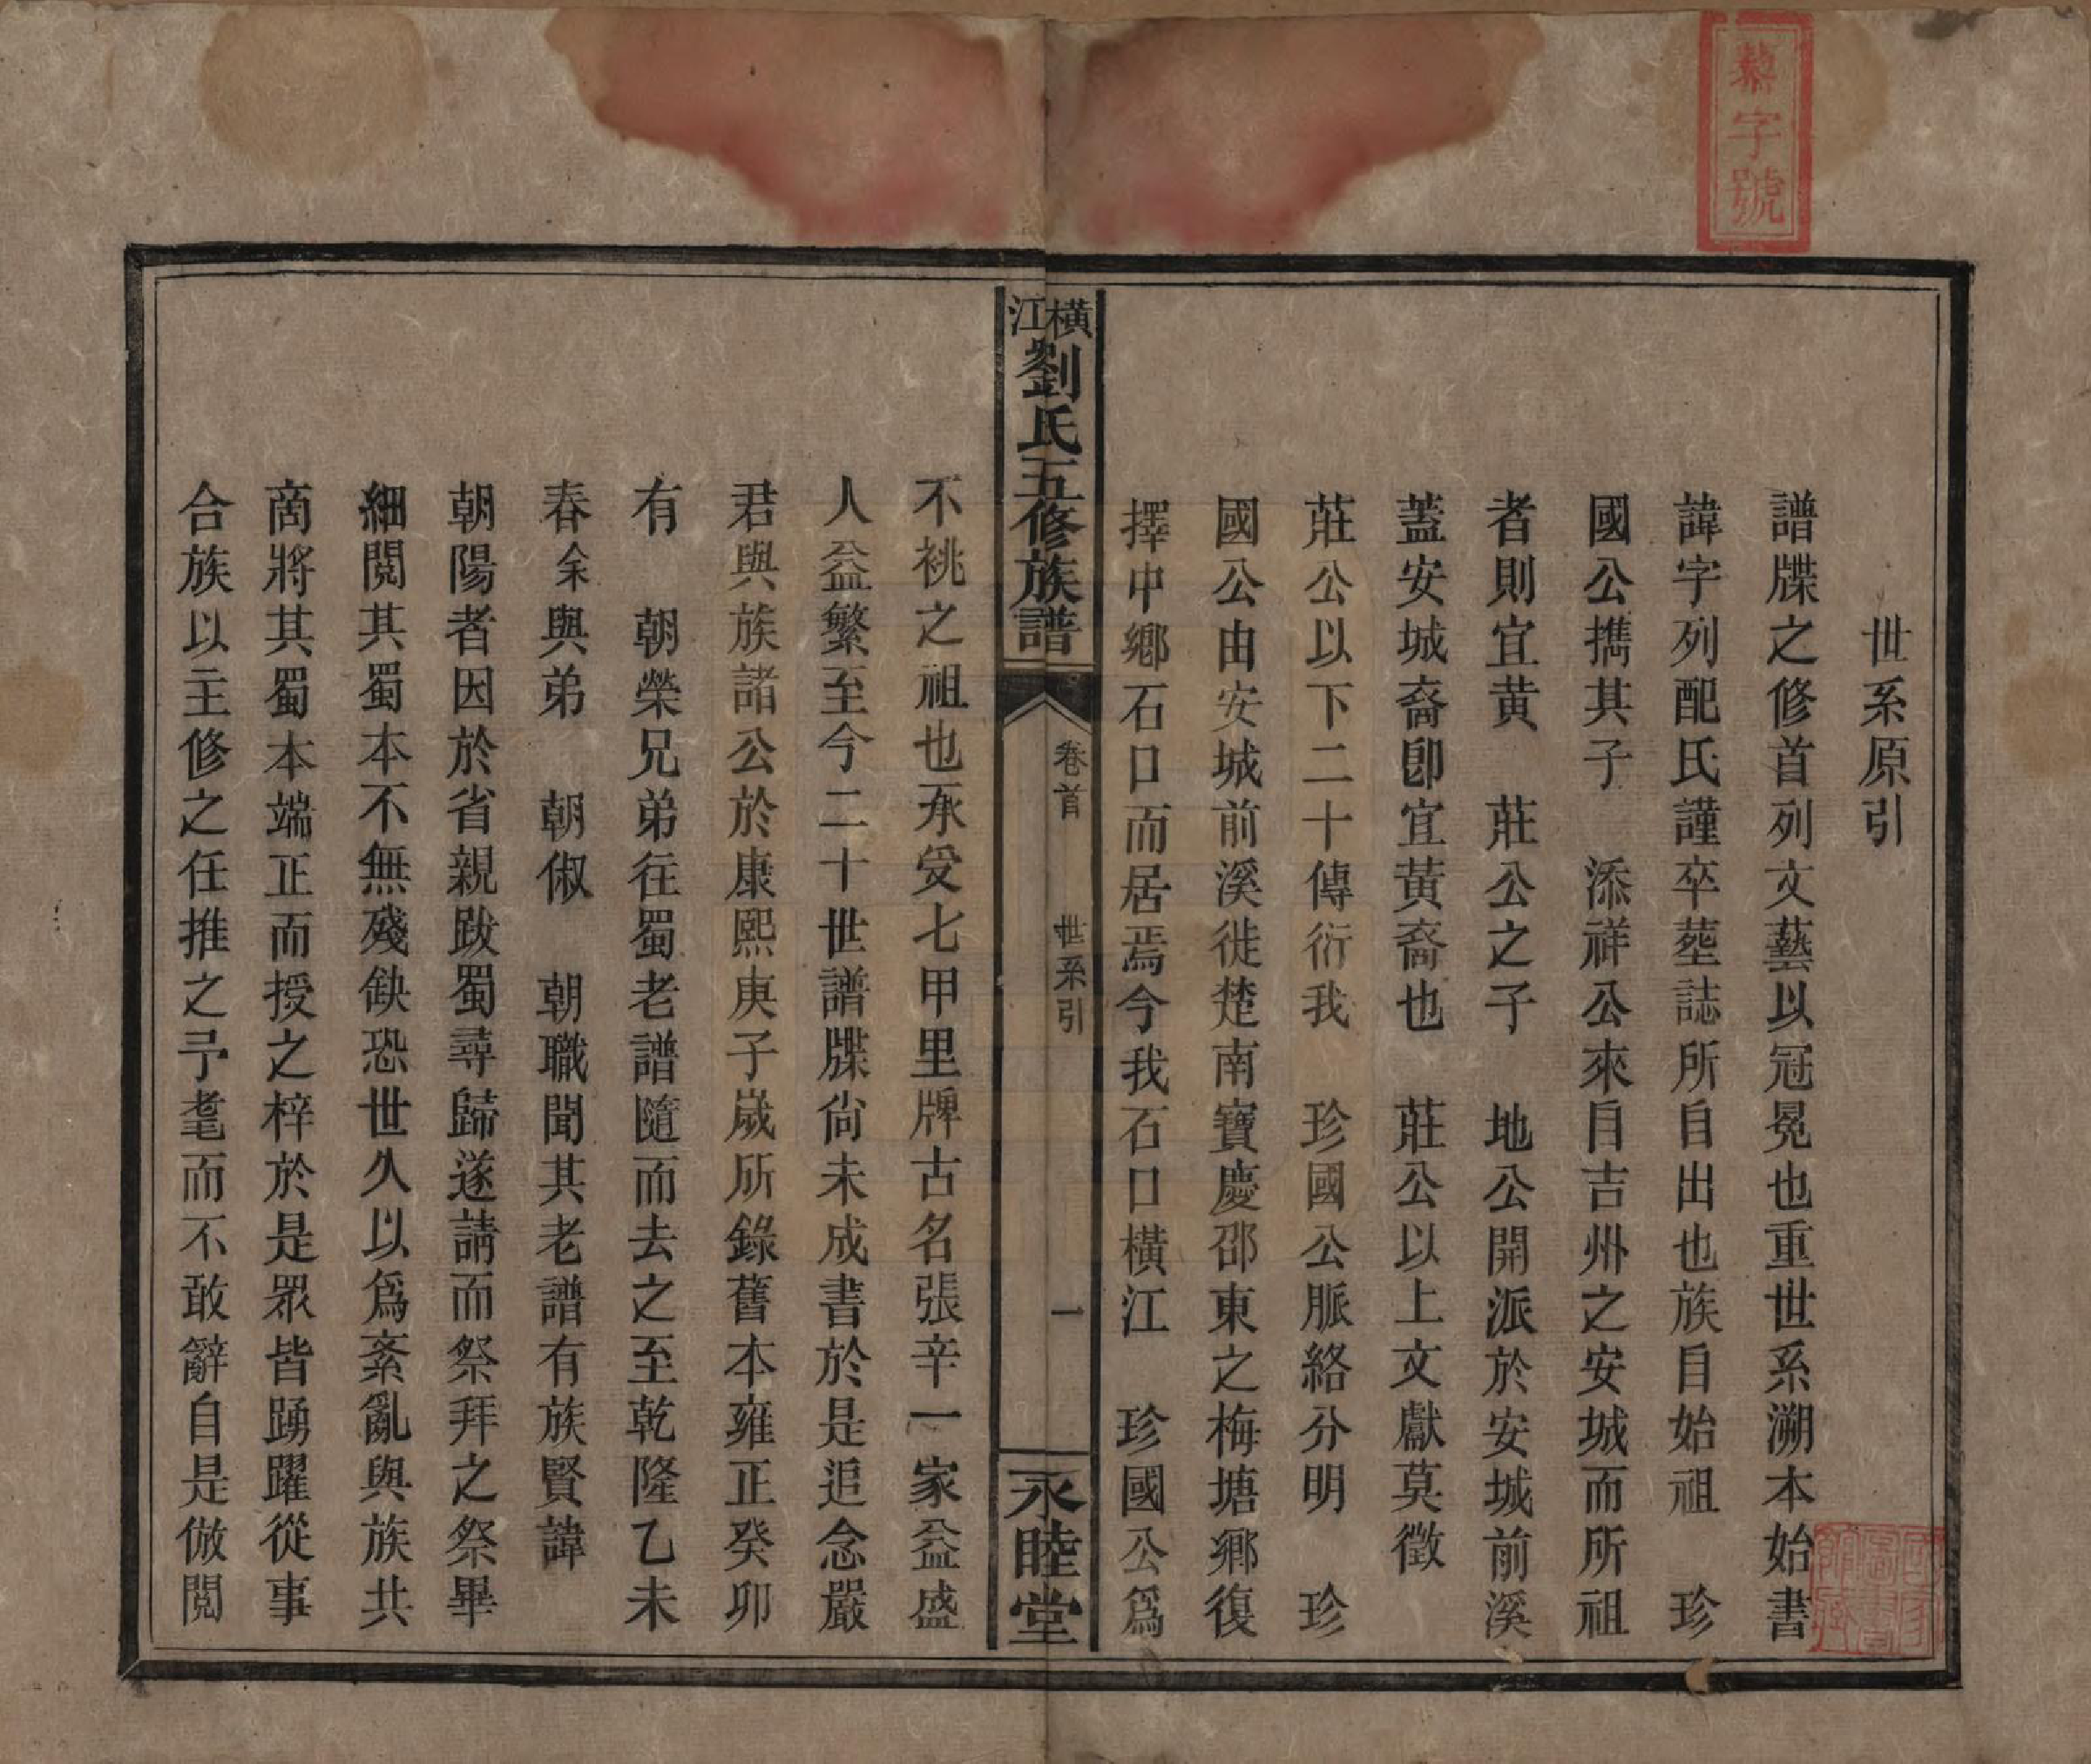 藜字號
世系原引
譜牒之修首列文藝以冠冕也重世系溯本始書
諱字列配氏謹卒塟誌所自出也族自始祖　珍
國公攜其子　添祥公來自吉州之安城而所祖
者則宜黄　莊公之子　地公開派於安城前溪
蓋安城裔卽宜黃裔也　莊公以上文獻莫徵
莊公以下二十傳衍我　珍國公脈絡分明　珍
國公由安城前溪徙楚南寶慶邵東之梅塘鄉復
擇中鄉石口而居焉今我石口橫江　珍國公爲
橫江劉氏五修族譜　卷首　世系引　一　永睦堂
不祧之祖也承受七甲里牌古名張辛一家益盛
人益繁至今二十世譜牒尙未成書於是追念嚴
君與族諸公於康熙庚子嵗所錄舊本雍正癸卯
有　朝榮兄弟往蜀老譜隨而去之至乾隆乙未
春余與弟　朝俶　朝職聞其老譜有族賢諱
朝陽者因於省親跋蜀尋歸遂請而祭拜之祭畢
細閱其蜀本不無殘缺恐世久以爲紊亂與族共
啇將其蜀本端正而授之梓於是眾皆踴躍從事
合族以主修之任推之予耄而不敢辭自是倣閲
國家圖書館藏